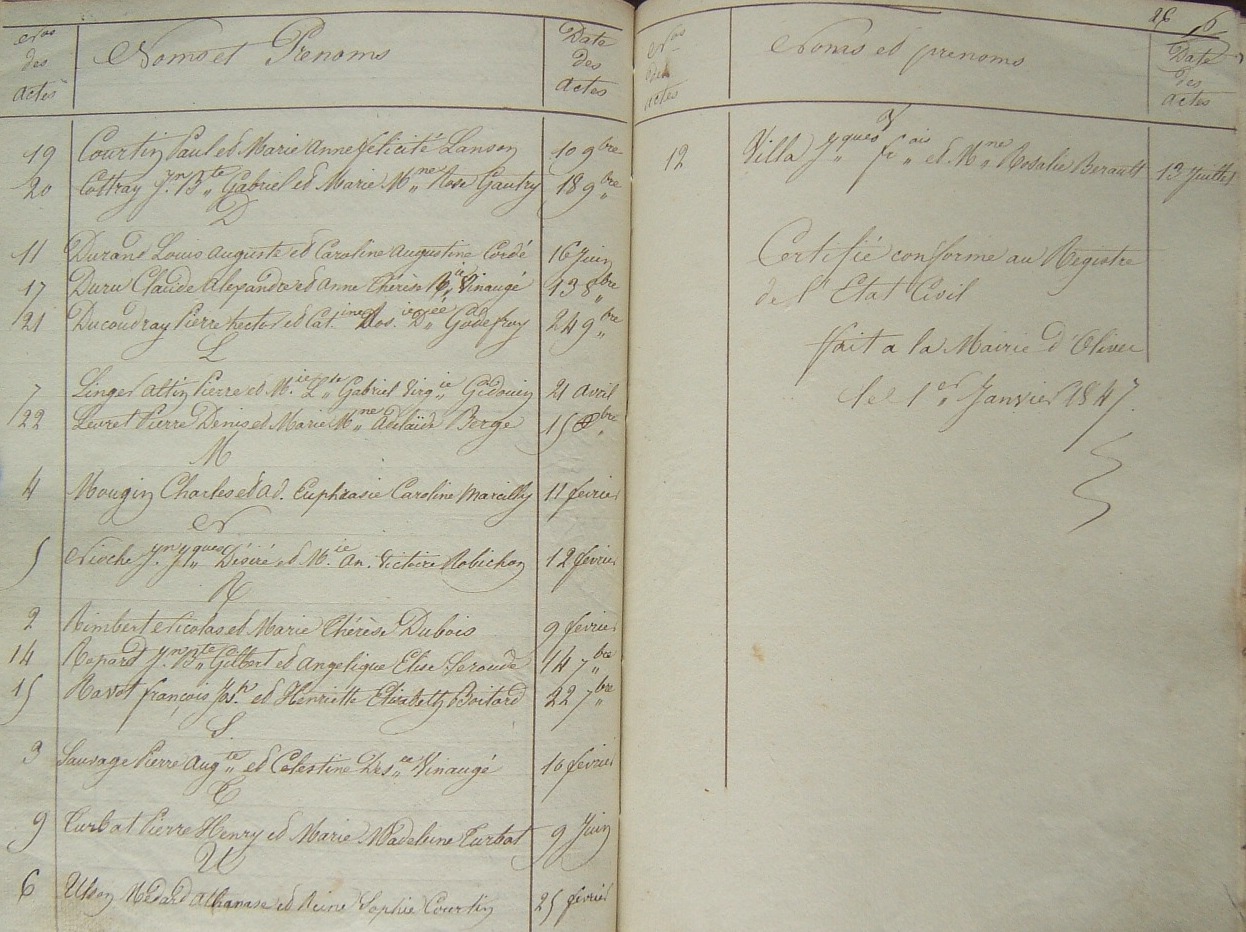 Nos des actes
Noms et Prenoms
Date des actes
19 Courtin Paul et Marie Anne félicité Lanson 10 9bre
20 Cottray Jn. Bte Gabriel et Marie Mne Rose Gautry 18 9bre
D
11 Durand Louis Auguste et Caroline Augustine Cordé 16 Juin
17 Duru Claude Alexandre et Anne Thérèse Vinaugé 13 8bre
21 Ducoudray Pierre hector et Cat.ine Ros.ie Dée Godefroy 24 9bre
L
7 Linger Altin Pierre et Mie Lse Gabriel Virgie Gidouin 21 avril
22 Leuret Pierre Denis et Marie Mne Adelaïde Berge 15 bre
M
4 Mougin Charles et Ad. Euphrasie Caroline Marcilly 11 fevrier
N
5 Nioche Jn. Jques Désiré, et Mie An. Victoire Robichon 12 fevrier
R
2 Rimbert Nicolas et Marie Thérèse Dubois 9 fevrier
14 Repard Jn Bte Gilbert et Angelique Elise Leroude 14 7bre
15 Ravot françois Jos.h et Henriette Elizabeth Boitard 22 7bre
S.
3 Sauvage Pierre Augte et Celestine Des.ée Vinaugé 10 fevrier
T
9 Turbat Pierre Henry et Marie Madeleine Turbat 9 Juin
U
6 Medard Athanase et Reine Sophie Courtin 25 fevrier
26
Nos des actes
Noms et prenoms
Date des actes
V
12 Villa Jques frais et Mne Rosalie Berault 13 Juillet
Certifié conforme au Régistre
de l'Etat Civil
fait a la Mairie d'Olivet
le 1er Janvier 1847.